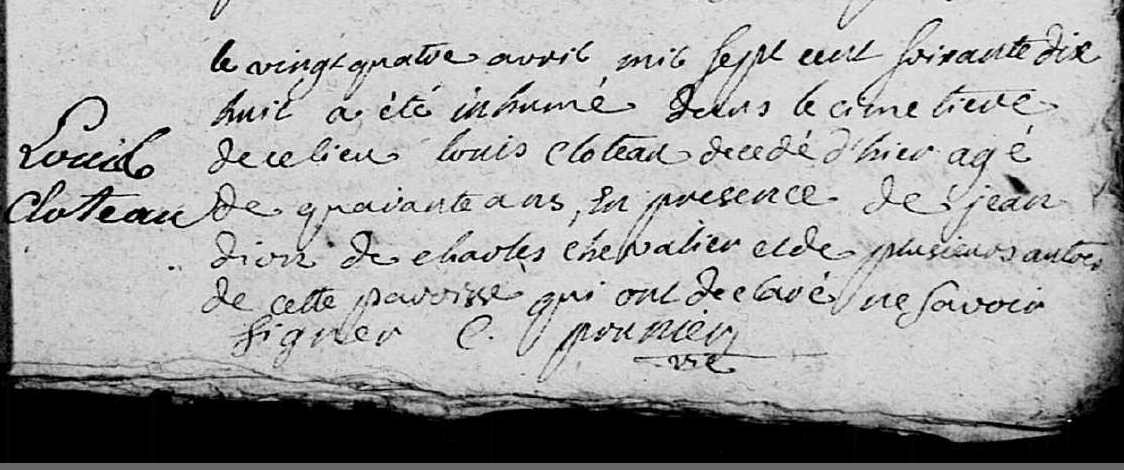 le vingt quatre avril mil sept cent soixante dix
huit a été inhumé dans le cimetiere
Louis
de ce lieu louis cloteau decedé d'hier agé
Cloteau
de quarante ans, en presence de jean
dion de charles chevalier et de plusieurs autres
de cette paroisse qui ont declaré ne savoir
signer C. prunier
vic